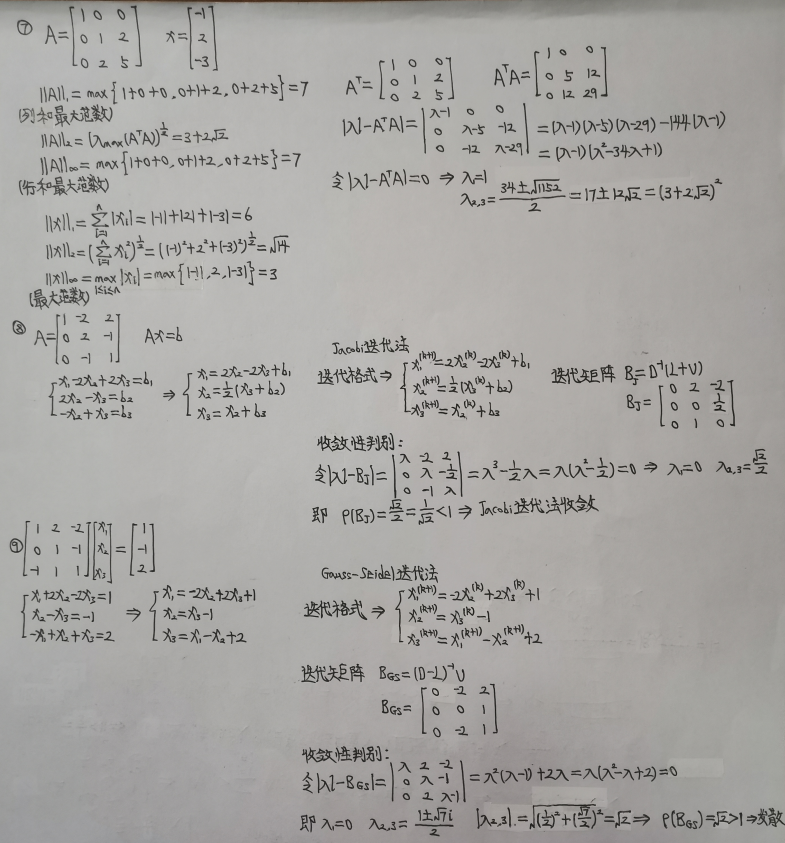 ⑦ A=[1 0 0; 0 1 2; 0 2 5] x=[-1; 2; -3]
||A||₁=max{1+0+0, 0+1+2, 0+2+5}=7
(列和最大范数)
||A||₂=(λmax(AᵀA))^½=3+2√2
||A||∞=max{1+0+0, 0+1+2, 0+2+5}=7
(行和最大范数)
Aᵀ=[1 0 0; 0 1 2; 0 2 5] AᵀA=[1 0 0; 0 5 12; 0 12 29]
|λI-AᵀA|=|λ-1 0 0; 0 λ-5 -12; 0 -12 λ-29|=(λ-1)(λ-5)(λ-29)-144(λ-1)
=(λ-1)(λ²-34λ+1)
令|λI-AᵀA|=0 ⇒ λ=1
λ₂,₃=(34±√1152)/2=17±12√2=(3+2√2)²
||x||₁=∑ⁿᵢ₌₁|xᵢ|=|-1|+|2|+|-3|=6
||x||₂=(∑ⁿᵢ₌₁xᵢ²)^½=((-1)²+2²+(-3)²)^½=√14
||x||∞=max 1≤i≤n |xᵢ|=max{|-1|, 2, |-3|}=3
(最大范数)
⑧ A=[1 -2 2; 0 2 -1; 0 -1 1] Ax=b
{x₁-2x₂+2x₃=b₁ ⇒ {x₁=2x₂-2x₃+b₁
2x₂-x₃=b₂ x₂=½(x₃+b₂)
-x₂+x₃=b₃ x₃=x₂+b₃
Jacobi迭代法
迭代格式⇒{x₁^(k+1)=2x₂^(k)-2x₃^(k)+b₁
x₂^(k+1)=½(x₃^(k)+b₂)
x₃^(k+1)=x₂^(k)+b₃
迭代矩阵 B_J=D⁻¹(L+U)
B_J=[0 2 -2; 0 0 ½; 0 1 0]
收敛性判别:
令|λI-B_J|=|λ -2 2; 0 λ -½; 0 -1 λ|=λ³-½λ=λ(λ²-½)=0 ⇒ λ₁=0 λ₂,₃=√2/2
即 ρ(B_J)=√2/2=1/√2<1 ⇒ Jacobi迭代法收敛
⑨ [1 2 -2; 0 1 -1; -1 1 1][x₁; x₂; x₃]=[1; -1; 2]
{x₁+2x₂-2x₃=1 ⇒ {x₁=-2x₂+2x₃+1
x₂-x₃=-1 x₂=x₃-1
-x₁+x₂+x₃=2 x₃=x₁-x₂+2
Gauss-Seidel迭代法
迭代格式 ⇒ {x₁^(k+1)=-2x₂^(k)+2x₃^(k)+1
x₂^(k+1)=x₃^(k)-1
x₃^(k+1)=x₁^(k+1)-x₂^(k+1)+2
迭代矩阵 B_GS=(D-L)⁻¹U
B_GS=[0 -2 2; 0 0 1; 0 -2 1]
收敛性判别:
令|λI-B_GS|=|λ 2 -2; 0 λ -1; 0 2 λ-1|=λ²(λ-1)+2λ=λ(λ²-λ+2)=0
即 λ₁=0 λ₂,₃=(1±√7i)/2 |λ₂,₃|=√((½)²+(√7/2)²)=√2 ⇒ ρ(B_GS)=√2>1⇒发散